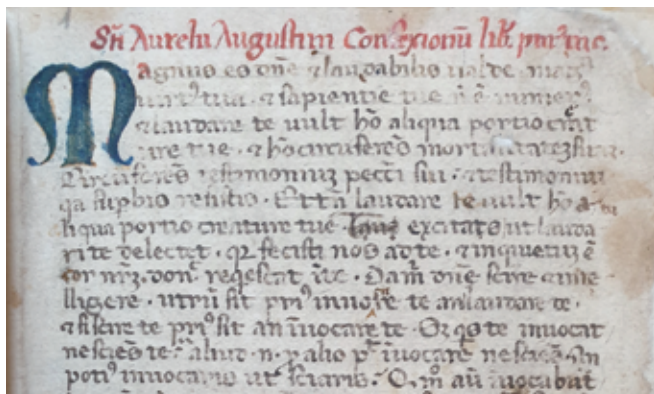 Sn Aurelii Augustini Confessionu lib. primus.
Magnus es dne & laudabilis ualde. magna
uirt9 tua. & sapientie tue n e numer9.
& laudare te uult ho aliqua portio creat
ure tue. & ho circuferes mortalitate suam.
Circuferes testimoniu pecci sui. & testimoniu
qa supbis resistis. Et tn laudare te uult ho a
liqua portio creature tue. excitas ut lauda
ri te delectet. qz fecisti nos ad te. & inquietu e
cor nrz. donec reqescat i te. Da m dne scire & inte
lligere. utru sit pri9 inuocare te an laudare te.
& si scire te pri9 sit an iuocare te. Sz qs te inuocat
nesciens te. aliud .n. p alio pt iuocare nesciens. An
poti9 inuocaris ut sciaris. Qmo au iuocabut